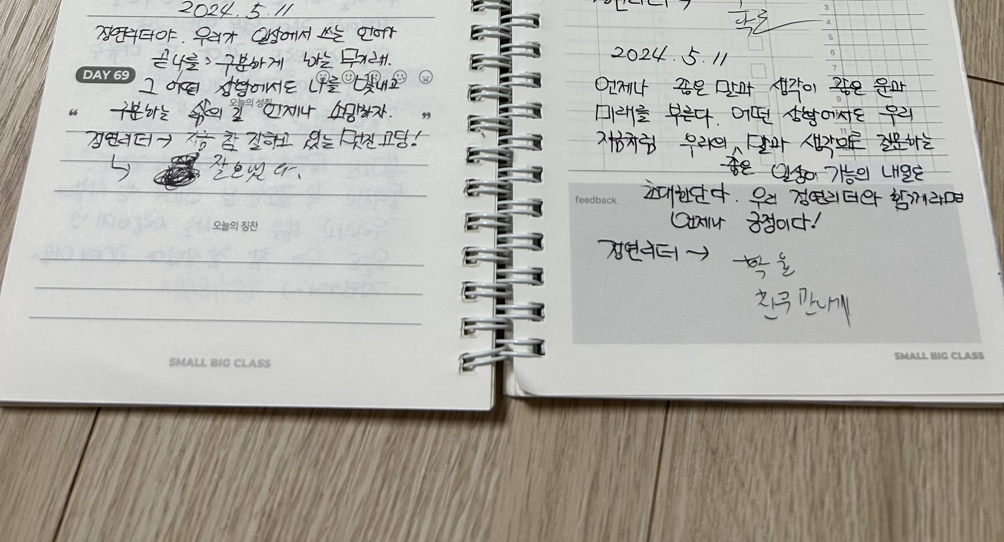 2024. 5. 11
정연리더야. 우리가 일상에서 쓰는 언어가
곧 나를 구분하게 하는 무기래.
DAY 69
그 어떤 상황에서도 나를 빛내고
오늘의 성찰
“구분하는 삶의 길 언제나 소망하자.”
정연리더 → 지금 참 잘하고 있는 멋진 고딩!
↳ 잘 오셨다.
오늘의 칭찬
SMALL BIG CLASS
정연리더 →
3
4
5
6
7
2024. 5. 11
언제나 좋은 말과 생각이 좋은 운과
미래를 부른다. 어떤 상황에서도 우리
지금처럼 우리의 좋은 말과 생각으로 질문하는
일상이 기능의 내일을
feedback
초대한단다. 우리 정연리더와 함께라면
언제나 긍정이다!
정연리더 →
친구 만나게
SMALL BIG CLASS